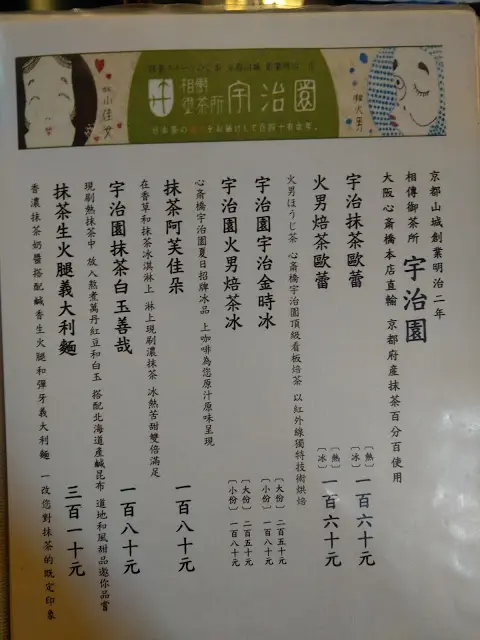 宇治園
日本茶の
京都山城創業明治二年
相傳御茶所 宇治園
大阪心斎橋本店直輸 京都府産抹茶百分百使用
宇治抹茶歐蕾 〔熱〕〔冰〕 一百六十元
火男焙茶歐蕾 〔熱〕〔冰〕 一百六十元
火男ほうじ茶 心斎橋宇治園頂級看板焙茶 以紅外線獨特技術烘焙
宇治園宇治金時冰 〔大份〕二百五十元 〔小份〕一百八十元
宇治園火男焙茶冰 〔大份〕二百五十元 〔小份〕一百八十元
心斎橋宇治園夏日招牌冰品 上咖啡為您原汁原味呈現
抹茶阿芙佳朵 一百八十元
在香草和抹茶冰淇淋上 淋上現刷濃抹茶 冰熱苦甜雙倍滿足
宇治園抹茶白玉善哉 一百八十元
現刷熱抹茶中 放入熬煮萬丹紅豆和白玉 搭配北海道產鹹昆布 道地和風甜品邀你品嘗
抹茶生火腿義大利麵 三百一十元
香濃抹茶奶醬搭配鹹香生火腿和彈牙義大利麵 一改您對抹茶的既定印象